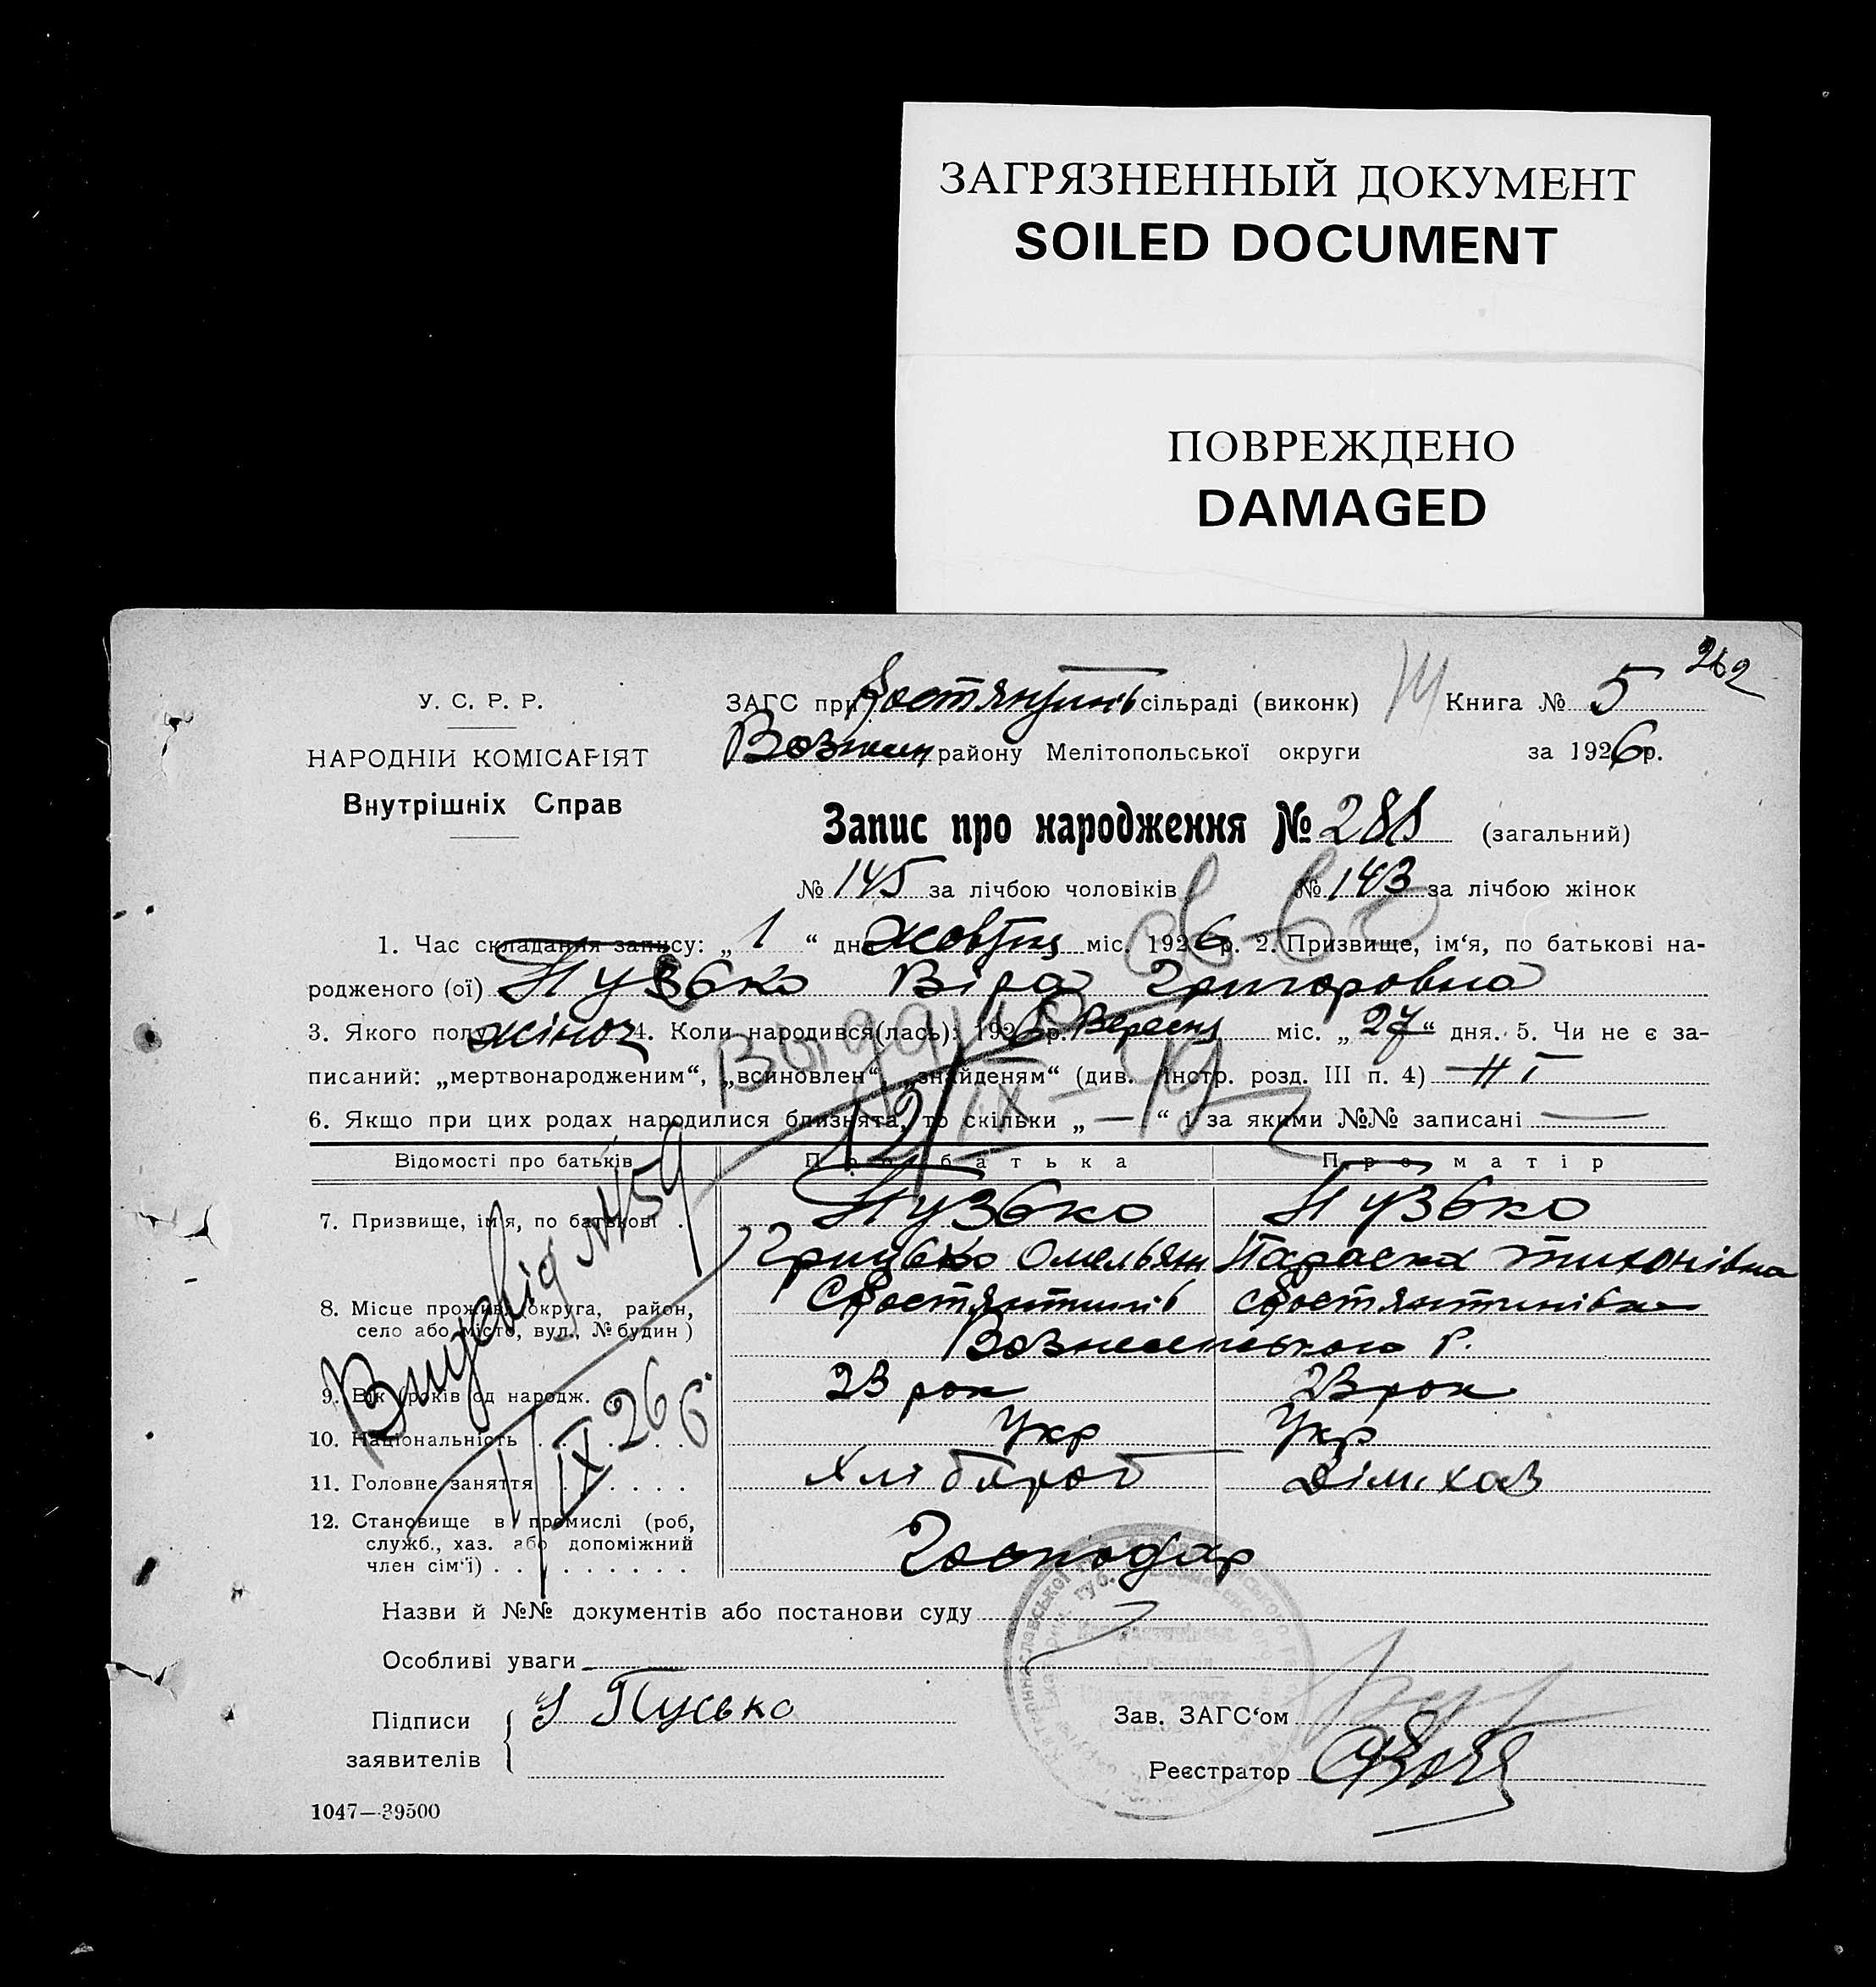 ЗАГРЯЗНЕННЫЙ ДОКУМЕНТ
SOILED DOCUMENT
ПОВРЕЖДЕНО
DAMAGED
262
У. С. Р. Р.
НАРОДНІЙ КОМІСАРІЯТ
Внутрішніх Справ
ЗАГС при Костянтинів сільраді (виконк) Книга № 5
Вознесен району Мелітопольської округи за 1926 р.
Запис про народження № 288 (загальний)
№ 145 за лічбою чоловіків № 143 за лічбою жінок
1. Час складання запису: „ 1 “ дня жовтня міс. 1926 р. 2. Призвище, ім‘я, по батькові на-
родженого (ої) Пузько Віра Григоровна
3. Якого полу жіноч 4. Коли народився(лась): 1926 р. Вересня міс. „ 27 “ дня. 5. Чи не є за-
писаний: „мертвонародженим“, „всиновлен“, „знайденям“ (див. Інстр. розд. III п. 4) Ні
6. Якщо при цих родах народилися близнята, то скільки „ — “ і за якими №№ записані —
Відомості про батьків Про батька Про матір
7. Призвище, ім‘я, по батькові . Пузько Пузько
Грицько Омельян Параска Тихонівна
8. Місце прожив. (округа, район, С Костянтинів с Костянтинівка
село або місто, вул., № будин) Вознесенського Р.
9. Вік (років од народж. 23 рок 23 рок
10. Національність . . . . . . . Укр Укр
11. Головне заняття . . . . . . . Хлібороб Дім. хаз
12. Становище в промислі (роб,
служб., хаз. або допоміжний
член сім‘ї) . . . . . . . . . . Господар
Назви й №№ документів або постанови суду
Особливі уваги
Підписи
заявителів
Пусько
Зав. ЗАГС‘ом
Реєстратор
1047—39500